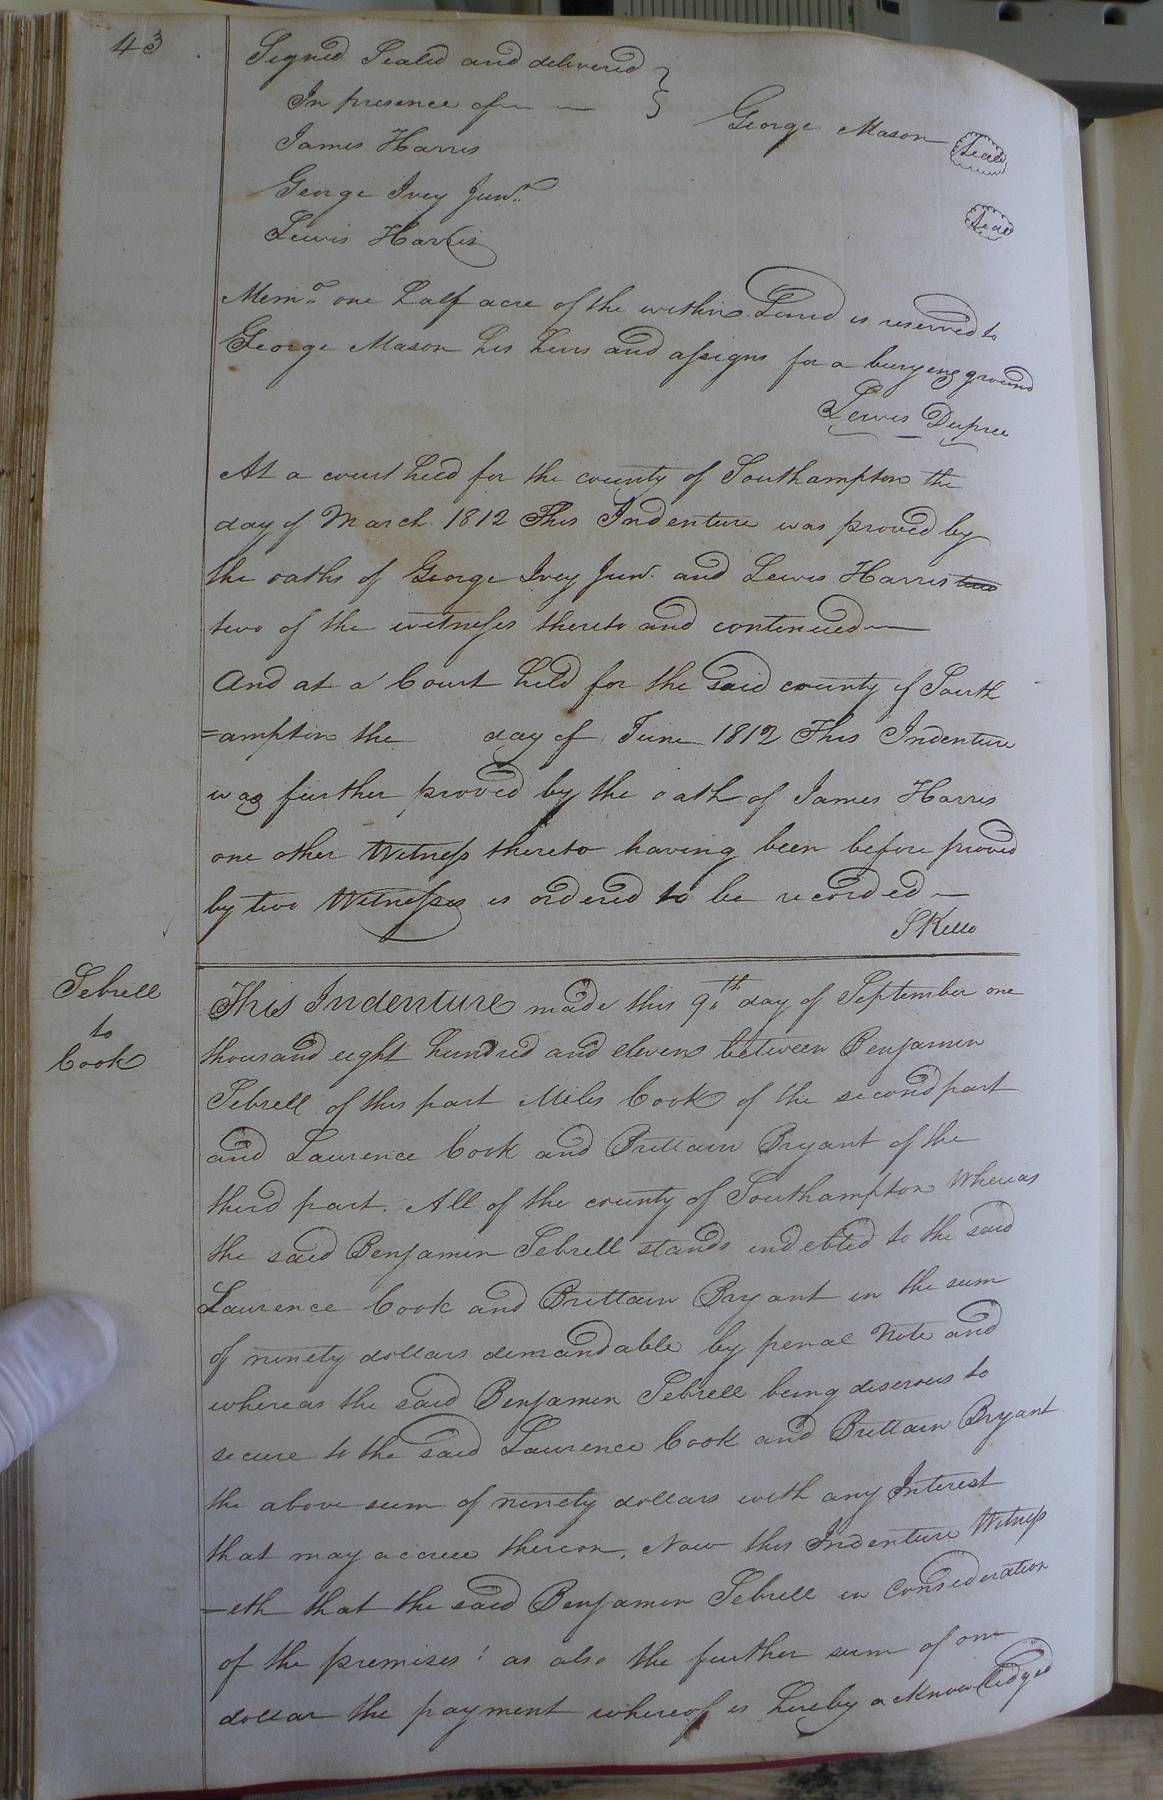 43
Signed Sealed and delivered
In presence of
George Mason Seal
James Harris
George Ivey Junr.
Seal
Lewis Harris
Memo. one half acre of the within Land is reserved to
George Mason his heirs and assigns for a burying ground
Lewis Dupree
At a court held for the county of Southampton the
day of March 1812 This Indenture was proved by
the oaths of George Ivey Junr. and Lewis Harris two
two of the witnesses thereto and continued
And at a Court held for the said county of South
=ampton the day of June 1812 This Indenture
was further proved by the oath of James Harris
one other Witness thereto having been before proved
by two Witnesses is ordered to be recorded
S Kello
Sebrell
to
Cook
This Indenture made this 9th day of September one
thousand eight hundred and eleven between Benjamin
Sebrell of this part Miles Cook of the second part
and Laurence Cook and Brittain Bryant of the
third part. All of the county of Southampton Whereas
the said Benjamin Sebrell stands indebted to the said
Laurence Cook and Brittain Bryant in the sum
of ninety dollars demandable by penal Note and
whereas the said Benjamin Sebrell being deserous to
secure to the said Laurence Cook and Brittain Bryant
the above sum of ninety dollars with any Interest
that may accrue thereon. Now this Indenture Witness
=eth that the said Benjamin Sebrell in Consideration
of the premises; as also the further sum of one
dollar the payment whereof is hereby acknowledged